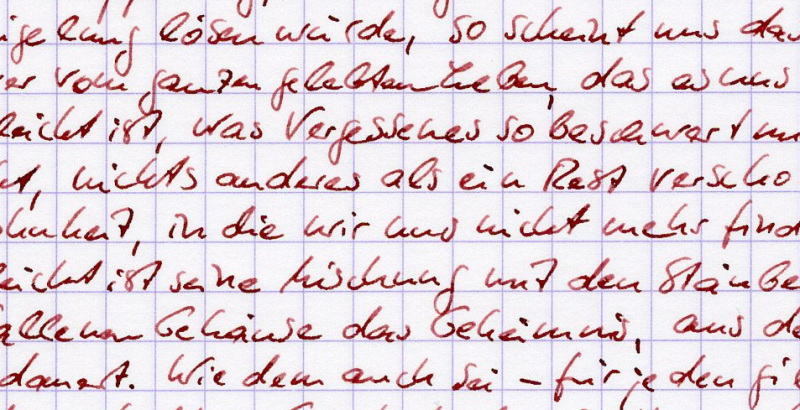 igelung lösen würde, so scheint uns das
er vom ganzen gelebten Leben, das es uns
leicht ist, was Vergessenes so beschwert un
ht, nichts anderes als ein Rest verscho
ohnheit, in die wir uns nicht mehr find
leicht ist seine Mischung mit den Staube
allenen Gehäuse das Geheimnis, aus de
dauert. Wie dem auch sei – für jeden gi